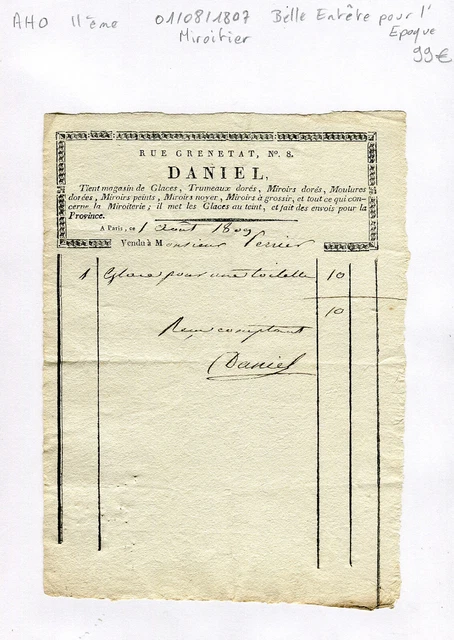 AHO 11ème 01/08/1807 Belle Entête pour l'
Miroitier Epoque
99€
RUE GRENETAT, N°. 8.
DANIEL,
Tient magasin de Glaces, Trumeaux dorés, Miroirs dorés, Moulures
dorées, Miroirs peints, Miroirs noyer, Miroirs à grossir, et tout ce qui con-
cerne la Miroiterie; il met les Glaces au teint, et fait des envois pour la
Province.
A Paris, ce 1 Aout
Vendu à Monsieur Perrier
1 Glace pour une toilette 10
10
Reçu comptant
Daniel